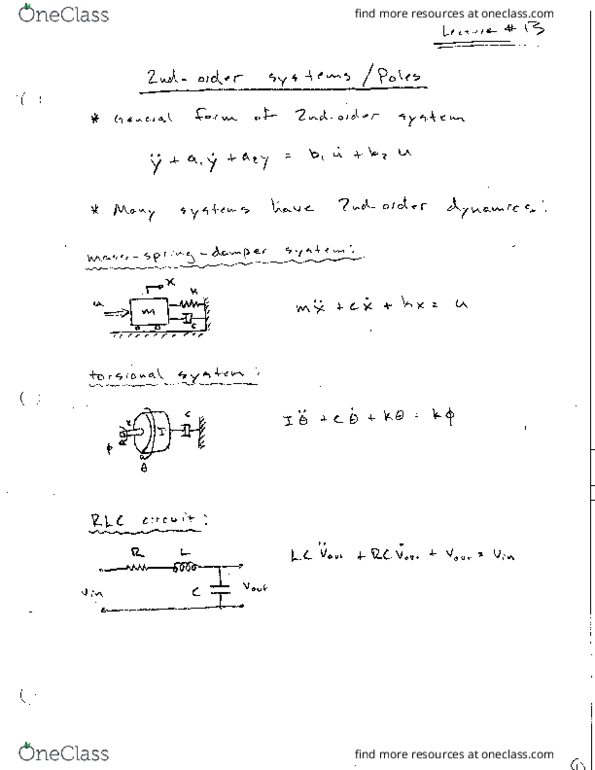 OneClass
find more resources at oneclass.com
Lecture # 13
2nd-order systems / Poles
* General form of 2nd-order system
ÿ + a₁ẏ + a₂y = b₁u̇ + b₂u
* Many systems have 2nd-order dynamics:
mass-spring-damper system:
x
k
u
m
c
mẍ + cẋ + kx = u
torsional system:
k
I
c
φ
θ
Iθ̈ + cθ̇ + kθ = kφ
RLC circuit:
R L
Vin
C
Vout
LC V̈out + RC V̇out + Vout = Vin
OneClass
find more resources at oneclass.com
1